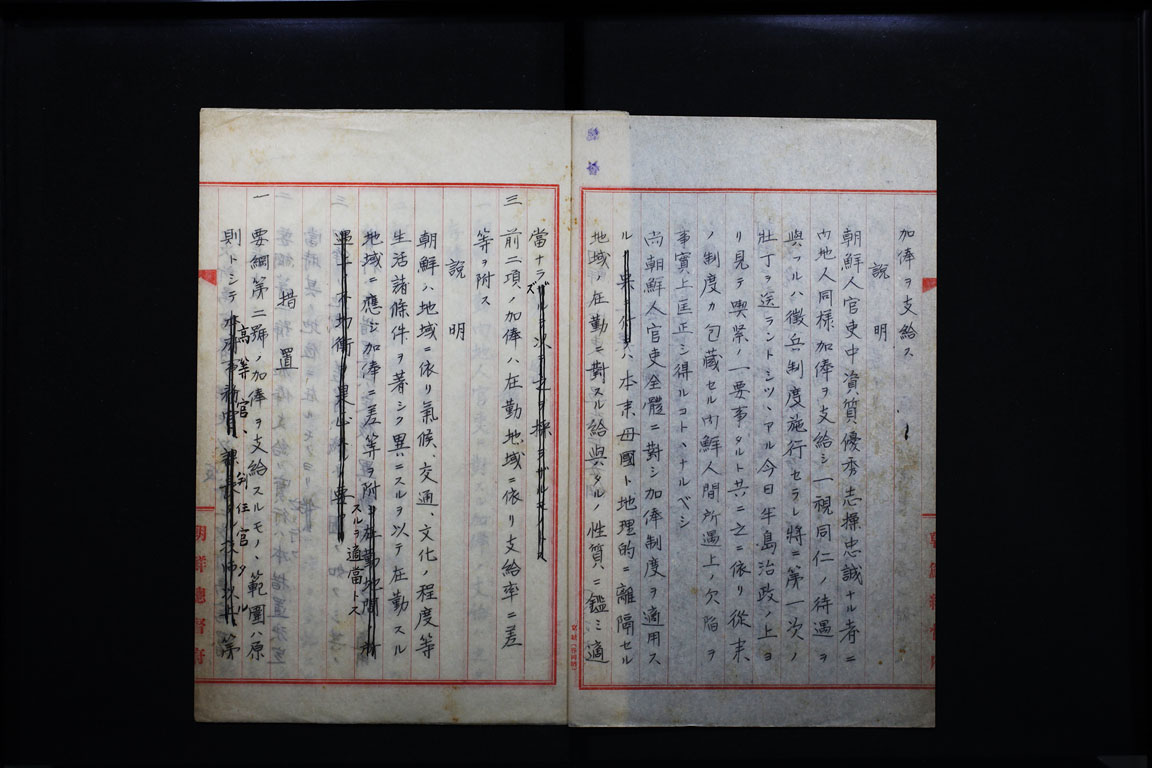 加俸ヲ支給ス
説明
朝鮮人官吏中資質優秀志操忠誠ナル者ニ
内地人同樣加俸ヲ支給シ一視同仁ノ待遇ヲ
與フルハ徴兵制度施行セラレ將ニ第一次ノ
壯丁ヲ送ラントシツヽアル今日半島治政ノ上ヨ
リ見テ喫緊ノ一要事タルト共ニ之ニ依リ從来
ノ制度カ包蔵セル内鮮人間所遇上ノ欠陥ヲ
事實上匡正シ得ルコトヽナルベシ
尚朝鮮人官吏全體ニ對シ加俸制度ヲ適用ス
ルハ本來母國ト地理的ニ離隔セル
地域ノ在勤ニ對スル給與タルノ性質ニ鑑ミ適
當ナラズ
三 前二項ノ加俸ハ在勤地域ニ依リ支給率ニ差
等ヲ附ス
説明
朝鮮ハ地域ニ依リ氣候、交通、文化ノ程度等
生活諸條件ヲ著シク異ニスルヲ以テ在勤スル
地域ニ應ジ加俸ニ差等ヲ附
スルヲ適當トス
措置
一 要綱第二號ノ加俸ヲ支給スルモノヽ範圍ハ原
則トシテ高等官、判任官タル
第
朝鮮總督府